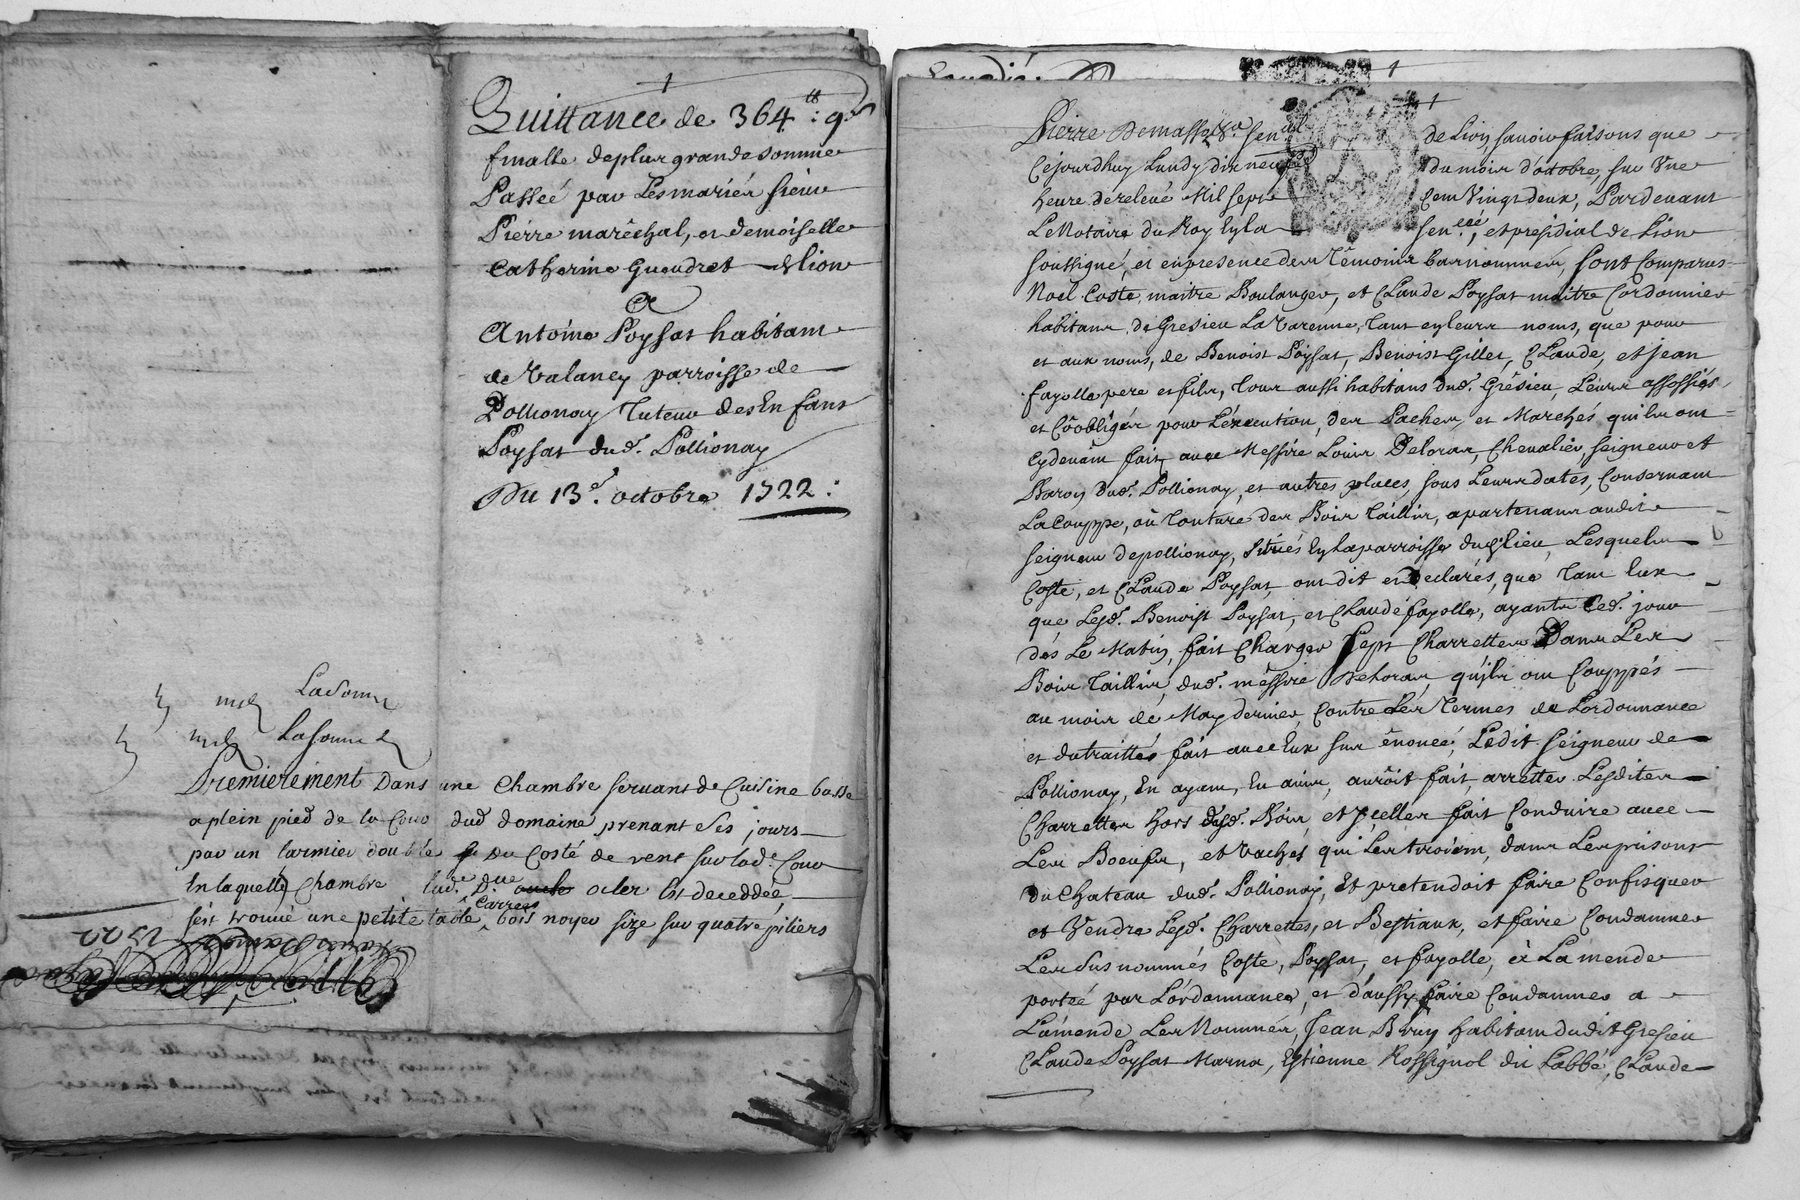 Quittance de 364ᵗᵗ: 9ˢ
finalle de plus grande somme
Passeé par Les mariés sieur
Pierre marêchal, et demoiselle
Catherine Gueudret de lion
A
Antoine Poysat habitant
de Valancy parroisse de
Pollionay Tuteur des Enfans
Poysat dud. Pollionay
Du 13ᵉ. octobre 1722:
Lasonne
Lasonne
Premierement Dans une Chambre servant de Cuisine basse
a plein pied de la Cour dud domaine prenant ses jours
par un larmier double du Costé de vent sur lad Cour
En laquelle Chambre lad.ᵉ D.ˡˡᵉ oler Est deceddée,
s'est trouvé une petite table Carreés bois noyer size sur quatre piliers
1722
Pierre Demasso, Sen.ᵃˡ de Lion, savoir faisons que
Cejourdhuy Lundy dix neuf du mois d'octobre, sur Une
heure de relevé Mil sept Cent Vingt deux, Pardevant
Le Notaire du Roy En la Sen.ᶜᵉᵉ, et presidial de Lion
soussigné, et en presence des Témoins bas nommés, sont Comparus
Noël Coste maitre Boulanger, et Claude Poysat maitre Cordonnier
habitans de Gresieu La Varenne, Tant en leurs noms, que pour
et aux noms, de Benoist Poysat, Benoist Gillet, Claude, et jean
fayolle pere et fils, Tous aussi habitans dud. Grésieu, Leurs assossiés
et Coobligés pour L'éxecution, des Paches, et Marchés qu'ils ont
Cydevant fait, avec Messire Louis Deloras, Chevalier, seigneur et
Baron dud. Pollionay, et autres places, sous Leurs dates, Consernant
La Couppe, où Tonture des Bois Taillis, apartenans audit
seigneur de pollionay, sitüés En La parroisse dud. lieu, Lesquels
Coste, et Claude Poysat, ont dit et declarés, que Tant Eux
que Lesd. Benoist Poysat, et Claude fayolle, ayants Ced. jour
dés Le Matin, fait Charger sept Charrettes Dans Les
Bois Taillis, dud. messire Deloras, qu'ils ont Couppés
au mois de May dernier, Contre Les Termes de L'ordonnance
et du traitté fait avec Eux sur ênoncé, Ledit seigneur de
Pollionay, En ayant, Eu avis, auroit fait, arrêtter Lesdites
Charrettes hors desd. Bois, et Icelles fait Conduire avec
Les Boeufs, et Vaches qui Les tiroient, dans Les prisons
du Chateau dud. Pollionay, Et pretendoit faire Confisquer
et Vendre Lesd. Charrettes, et Bestiaux, et faire Condamner
Les Susnommés Coste, Poysat, et fayolle, à La mende
porteé par L'ordonnance, et d'aussy faire Condamner a
L'amende Les Nommés, Jean Bruy habitant dudit Gresieu
Claude Poysat Marna, Estienne Rossignol dit Labbé, Claude